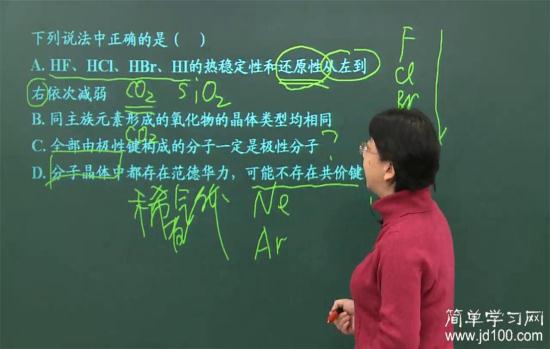 下列说法中正确的是（ ）
A. HF、HCl、HBr、HI的热稳定性和还原性从左到
右依次减弱
CO2 SiO2
B. 同主族元素形成的氧化物的晶体类型均相同
CO2
C. 全部由极性键构成的分子一定是极性分子
?
D. 分子晶体中都存在范德华力，可能不存在共价键
稀有气体 Ne
Ar
F
Cl
Br
简单学习网
www.jd100.com